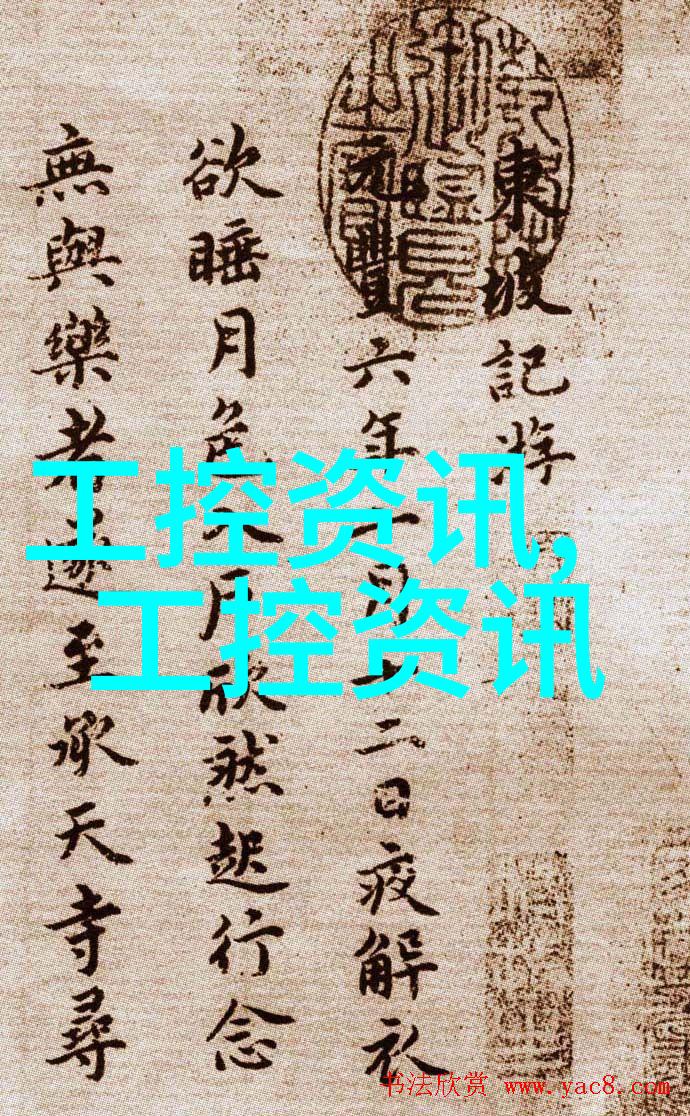 東坡記游
元豐六年十月十二日夜解衣
欲睡月色入戶欣然起行念
無與樂者遂至承天寺尋
工控资讯,
工控资讯
书法欣赏 www.yac8.com